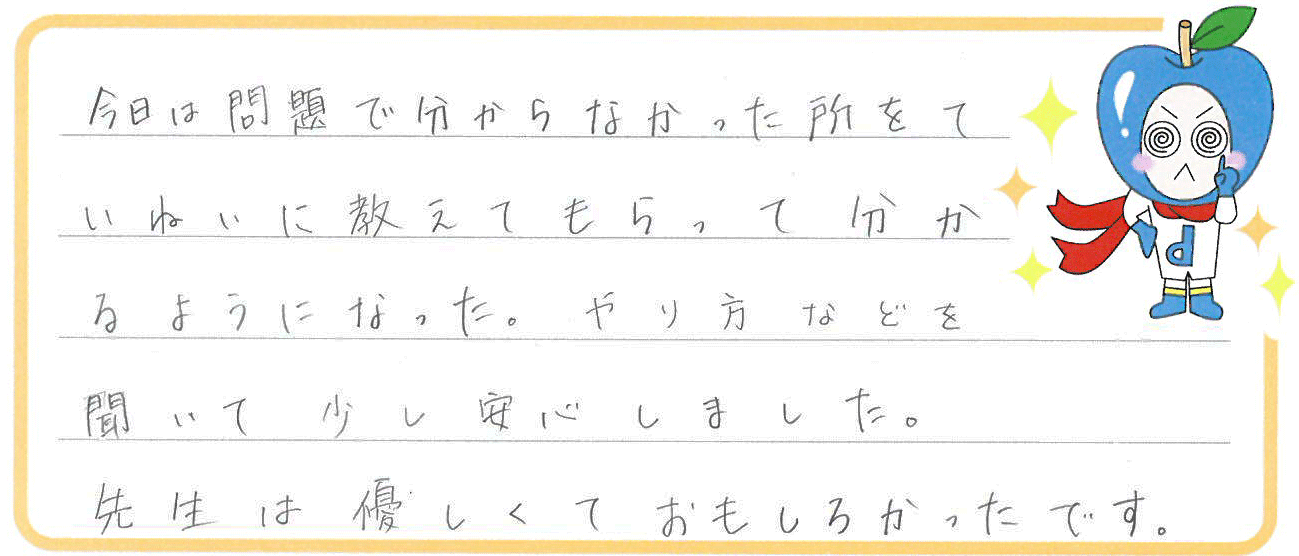 今日は問題で分からなかった所をて
いねいに教えてもらって分か
るようになった。やり方などを
聞いて少し安心しました。
先生は優しくておもしろかったです。
d